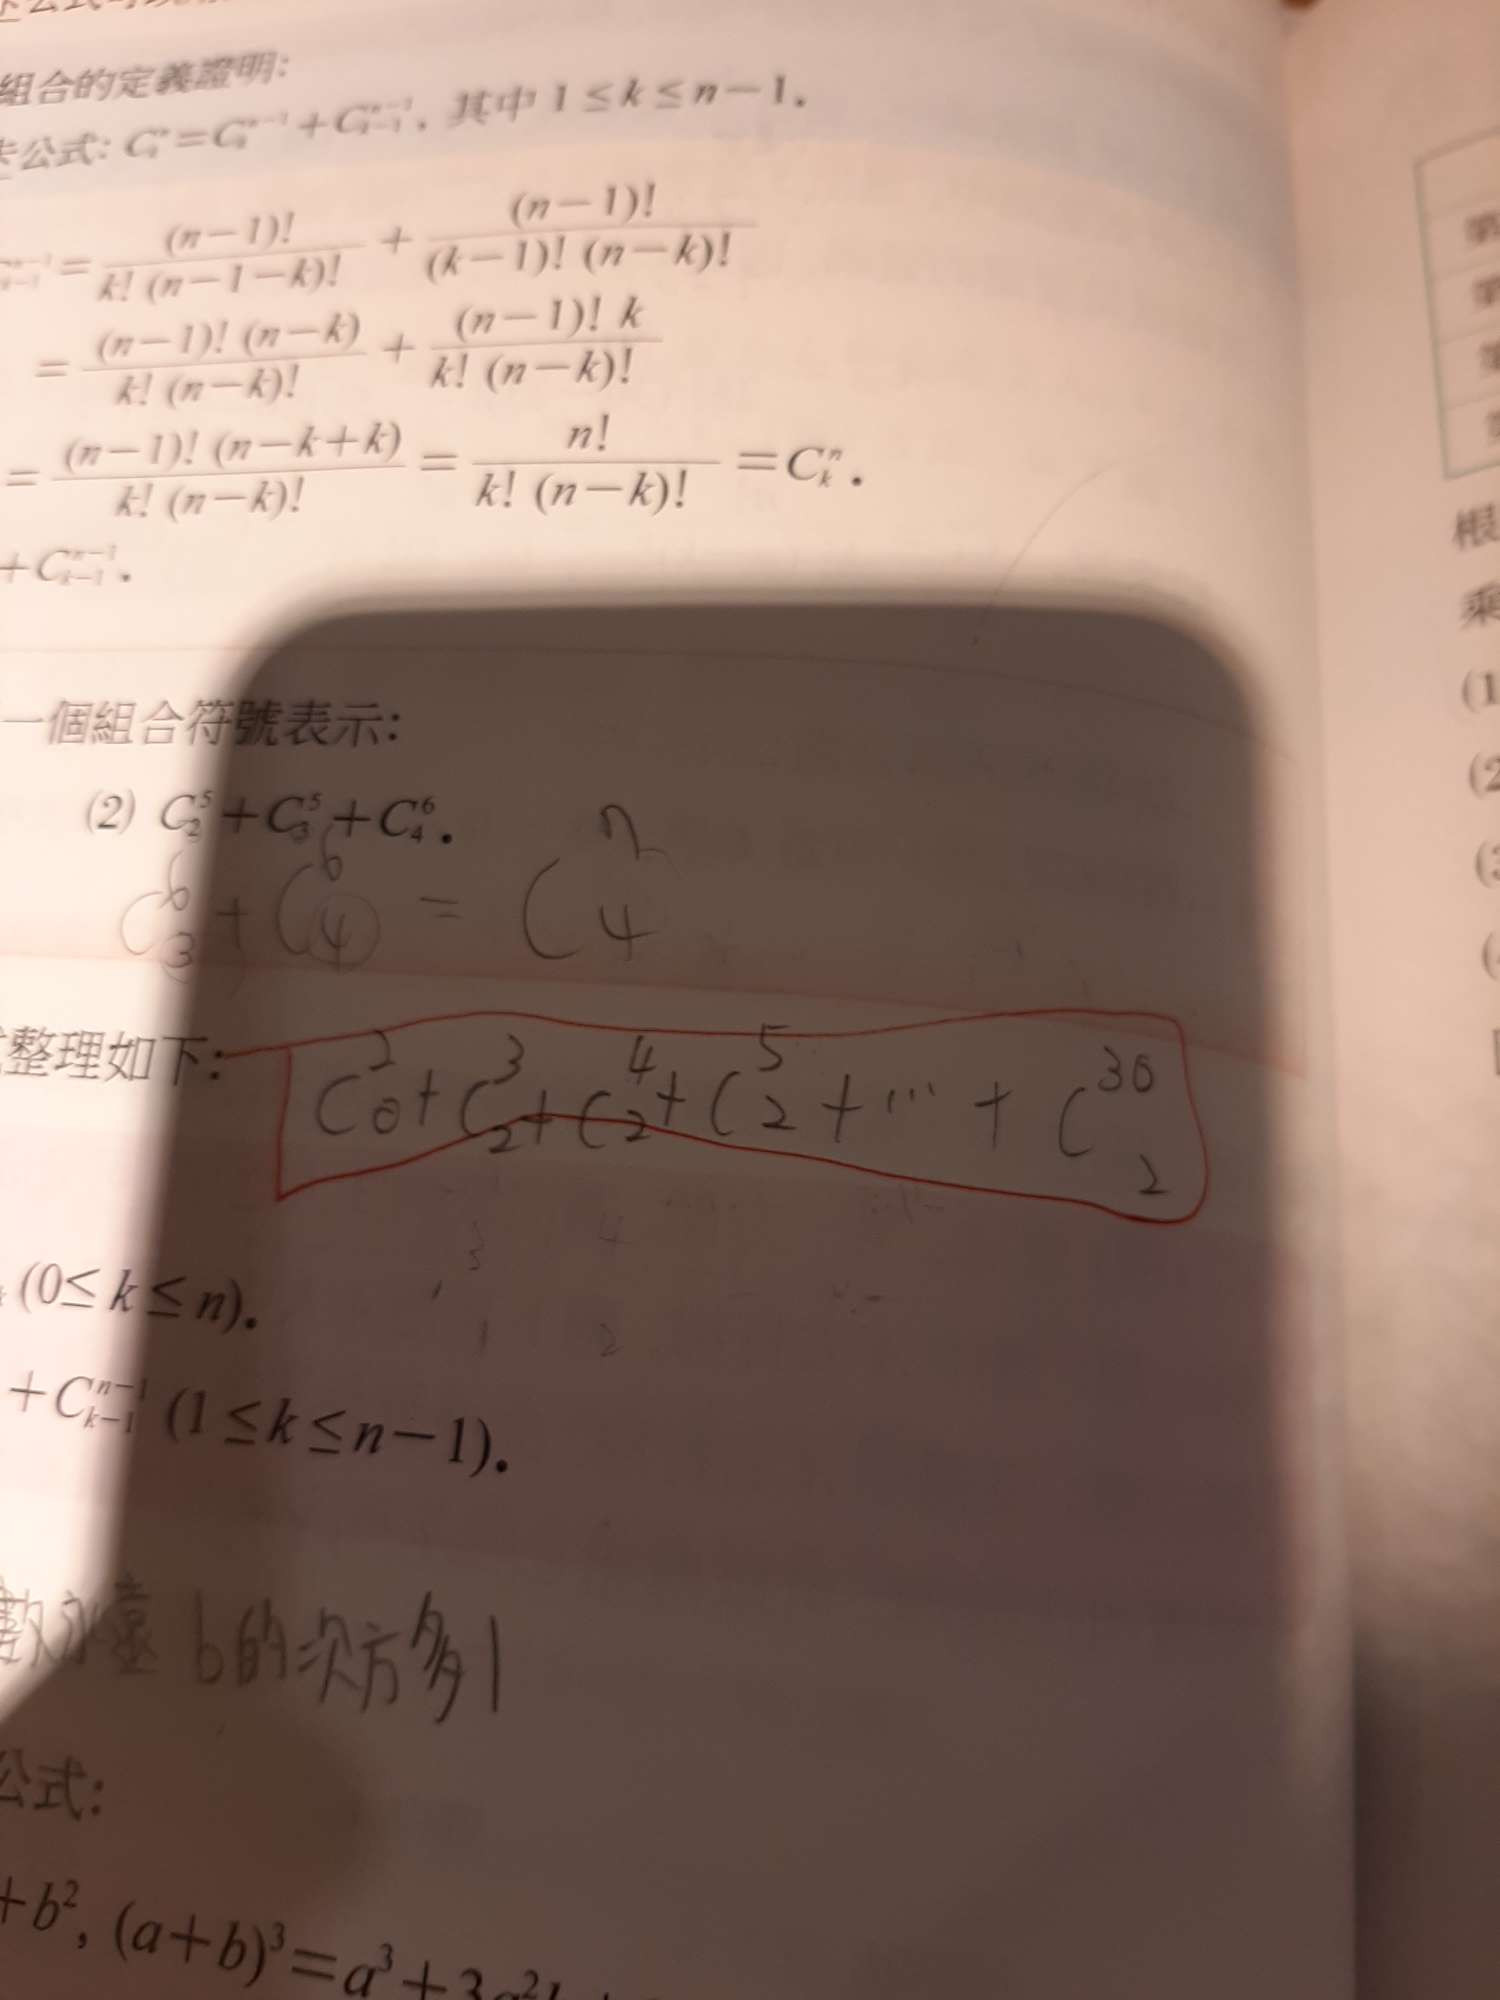 組合的定義證明:
公式: Cₖⁿ=Cₖⁿ⁻¹+Cₖ₋₁ⁿ⁻¹, 其中 1≤k≤n−1.
= (n−1)!/(k! (n−1−k)!) + (n−1)!/((k−1)! (n−k)!)
= (n−1)! (n−k)/(k! (n−k)!) + (n−1)! k/(k! (n−k)!)
= (n−1)! (n−k+k)/(k! (n−k)!) = n!/(k! (n−k)!) = Cₖⁿ.
+Cₖ₋₁ⁿ⁻¹.
一個組合符號表示:
(2) C₂⁵+C₃⁵+C₄⁶.
C₃⁶+C₄⁶ = C₄
整理如下:
C₀²+C₂³+C₂⁴+C₂⁵+…+C₂³⁰
(0≤k≤n).
+Cₖ₋₁ⁿ⁻¹ (1≤k≤n−1).
數永遠 b的次方多1
公式:
+b², (a+b)³=a³+3a²
根
乘
(1
(2
(3